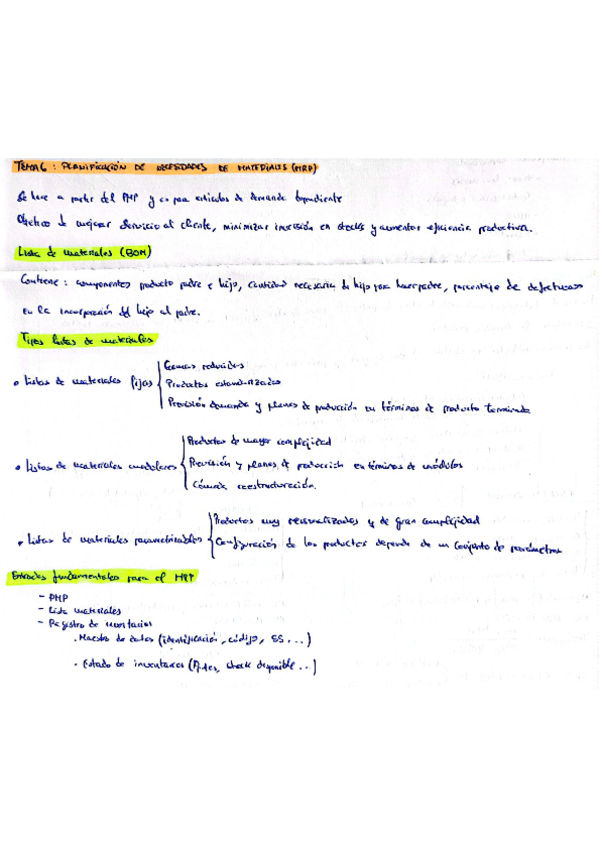 TEMA 6 : PLANIFICACIÓN DE NECESIDADES DE MATERIALES (MRP)
Se hace a partir del PMP y es para artículos de demanda dependiente
Objetivo de mejorar servicio al cliente, minimizar inversión en stocks y aumentar eficiencia productiva.
Lista de materiales (BOM)
Contiene : componentes producto padre e hijo, cantidad necesaria de hijo para hacer padre, porcentaje de defectuosos
en la incorporación del hijo al padre.
Tipos listas de materiales
• Listas de materiales fijas
Gamas reducidas
Productos estandarizados
Previsión demanda y planes de producción en términos de producto terminado
• Listas de materiales modulares
Productos de mayor complejidad
Previsión y planes de producción en términos de módulos
Cómoda reestructuración.
• Listas de materiales parametrizables
Productos muy personalizados y de gran complejidad
Configuración de los productos depende de un conjunto de parámetros
Entradas fundamentales para el MRP
- PMP
- Lista materiales
- Registro de inventarios
· Maestro de datos (identificación, código, SS ...)
· Estado de inventarios ( stock disponible ...)